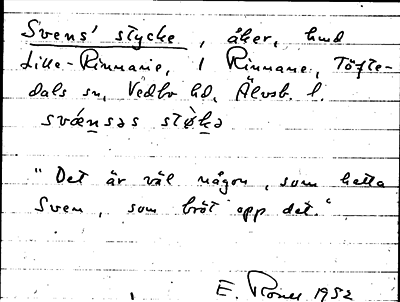 Svens' stycke, åker, hmd
Lilla-Rinnane, 1 Rinnane, Töfte-
dals sn, Vedbo hd, Älvsb. l.
svænsəs stø̀kə
"Det är väl någon, som hetta
Sven, som bröt opp det."
E. 1952